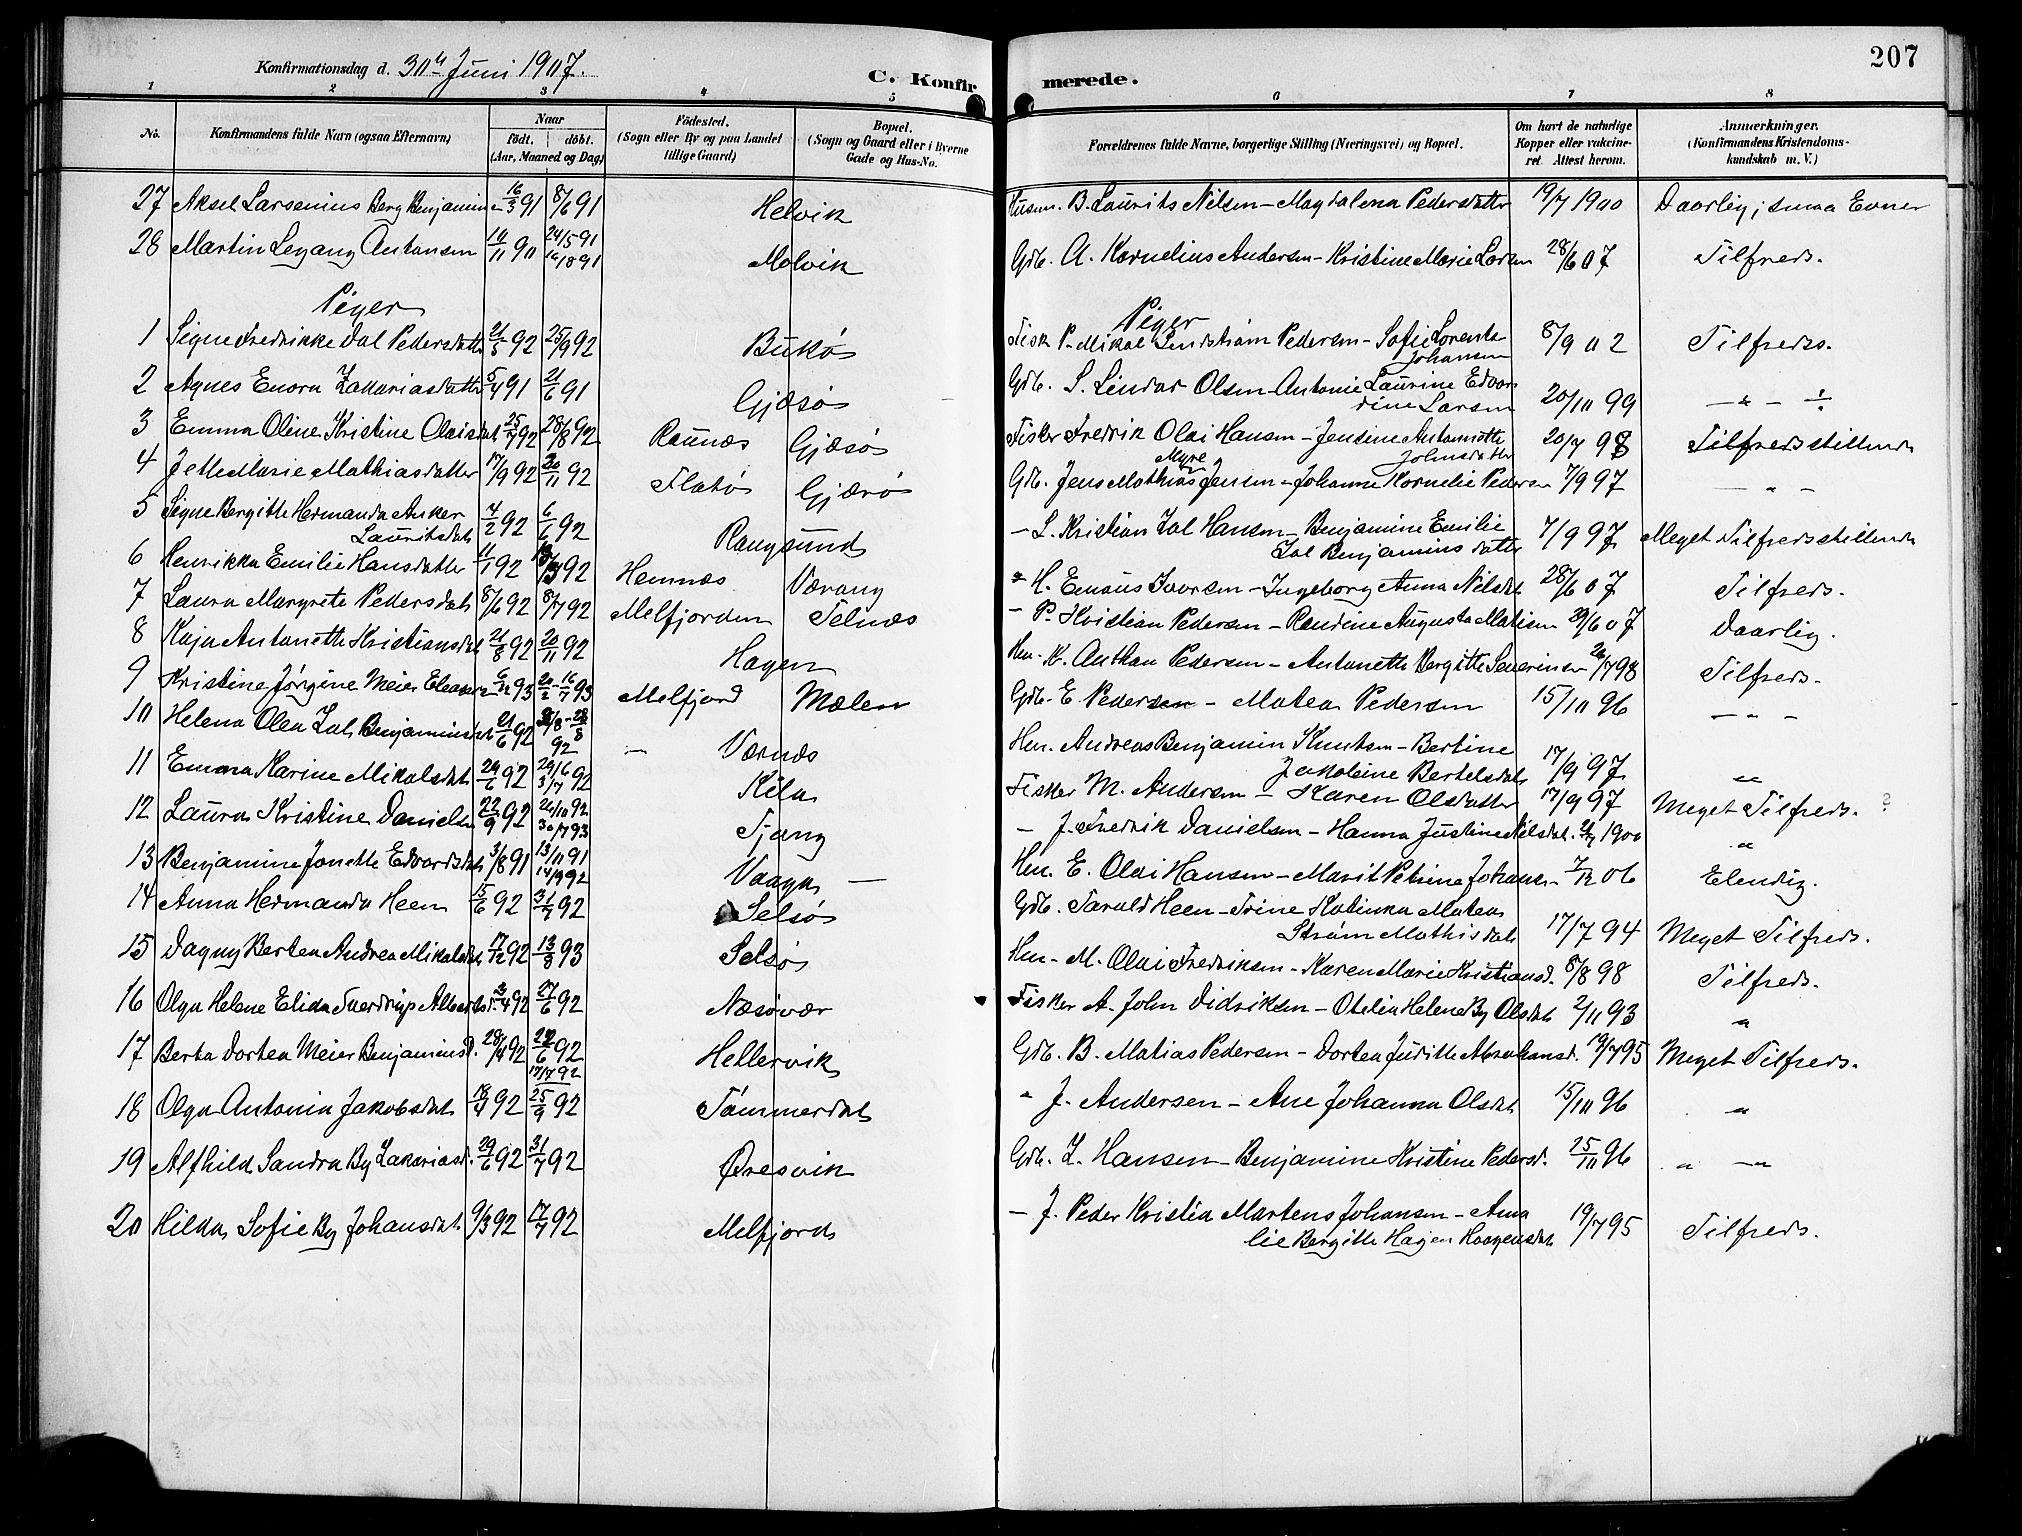 207
Konfirmationsdag d. 30te Juni 1907.
C. Konfirmerede.
1 2 3 4 5 6 7 8
No. Konfirmandens fulde Navn (ogsaa Efternavn) Naar födt. döbt. (Aar, Maaned og Dag) Födested. (Sogn eller By og paa Landet tillige Gaard) Bopæl. (Sogn og Gaard eller i Byerne Gade og Hus-No. Forældrenes fulde Navne, borgerlige Stilling (Næringsvei) og Bopæl. Om havt de naturlige Kopper eller vaccineret. Attest herom. Anmærkninger. (Konfirmandens Kristendomskundskab m. V.)
27 Aksel Larsenius Berg Benjamin 16/3 91 8/6 91 Helvik Husm. B. Laurits Nilsen - Magdalena Pedersdatter 19/7 1900 Daarlig; smaa Evner
28 Martin Leyang Antonsen 10/11 90 24/5 91 16/8 91 Molvik Gdb. A. Kornelius Andersen - Kristine Marie Larsen 28/6 07 Tilfreds.
Piger Piger
1 Signe Fredrikke Dal Pedersdatter 21/5 92 25/9 92 Bukø Fisk P. Mikal Lindstrøm Pedersen - Sofie Lorentse Johansen 8/9 02 Tilfreds.
2 Agnes Enora Zakariasdatter 5/4 91 21/6 91 Gjæsø Gdb. S. Lindor Olsen - Antonie Laurine Edvardine Larsen 20/10 99 - " -
3 Emma Oline Kristine Olaisdat 25/7 92 28/8 92 Raunes Gjæsø Fisker Fredrik Olai Hansen - Jensine Antonette Johnsdatter 20/7 98 Tilfredsstillende
4 Jette Marie Mathiasdatter 17/9 92 20/11 92 Flatø Gjærø Gdb. Jens Mathias Myre Jensen - Johanne Kornelie Pedersen 7/9 97 - " -
5 Signe Bergitte Hermanda Anker Lauritsdat 4/2 92 6/6 92 Rangsund - L. Kristian Zal Hansen - Benjamine Emilie Zal Benjaminsdatter 7/9 97 Meget Tilfredsstillende
6 Henrikka Emilie Hansdatter 11/1 92 13/3 92 Hemnes Værang " H. Emaus Ivarsen - Ingeborg Anna Nilsdat 28/6 07 Tilfreds.
7 Laura Margrete Pedersdat 8/6 92 8/7 92 Melfjorden Telnes - P. Kristian Pedersen - Randine Augusta Matisen 30/6 07 Daarlig.
8 Kaja Antonette Kristiansdat 21/8 92 20/11 92 Hagen Hm. K. Anthon Pedersen - Antonette Bergitte Severinsen 26/7 98 Tilfreds.
9 Kristine Jørgine Meier 93 16/7 93 Melfjord Mælen Gdb. E. Pedersen - Matea Pedersen 15/10 96 - " -
10 Helena Olea Zal Benjaminsdat 21/6 92 28/8 92 - Værnes Hm. Andreas Benjamin Knutsen - Bertine Jakobine Bertelsdat 17/9 97 "
11 Emma Karine Mikalsdat 24/6 92 29/6 3/7 92 Kila Fisker M. Andersen - Karen Olsdatter 17/9 97 Meget Tilfreds. ?
12 Laura Kristine Danielsen 22/9 92 26/10 92 30/7 93 Tjang - J. Fredrik Danielsen - Hanna Justine Nilsdat. 1900 "
13 Benjamine Jonette Edvardsdat 3/8 91 13/11 91 14/9 92 Vaaga - Hm. E. Olai Hansen - Marit Petrine Johans - 7/12 06 Elendig.
14 Anna Hermanda Heen 15/6 92 31/7 92 Selsø Gdb. Tarald Heen - Trine Katinka Matea Strøm Mathisdat 17/7 94 Meget Tilfreds.
15 Dagny Bertea Andrea Mikalsdat 17/12 92 13/8 93 Selsø Hm - M. Olai Fredriksen - Karen Marie Kristiansd. 8/8 98 Tilfreds.
16 Olga Helene Elida Sverdrup Albertsd. 3/4 92 17/6 92 Næsøvær Fisker A. John Didriksen - Otelia Helene By Olsdat 2/11 93 "
17 Berta Dortea Meier Benjaminsd. 28/4 92 22/6 92 17/7 92 Hellervik Gdb. B. Matias Pedersen - Dortea Juditte Abrahamsd. 19/7 95 Meget Tilfreds.
18 Olga Antonia Jakobsdat 18/4 92 25/9 92 Tømmerdal " J. Andersen - Ane Johanna Olsdat 15/10 96 "
19 Alfhild Sandra By Zakariasd. 29/6 92 31/7 92 Øresvik Gdb. Z. Hansen - Benjamine Kristine Pedersd. 25/10 96 " - "
20 Hilda Sofie By Johansdat 9/3 92 17/7 92 Melfjord - J. Peder Kristian Martens Johansen - Amalie Bergitte Hagen Haagensdat 19/7 95 Tilfreds.